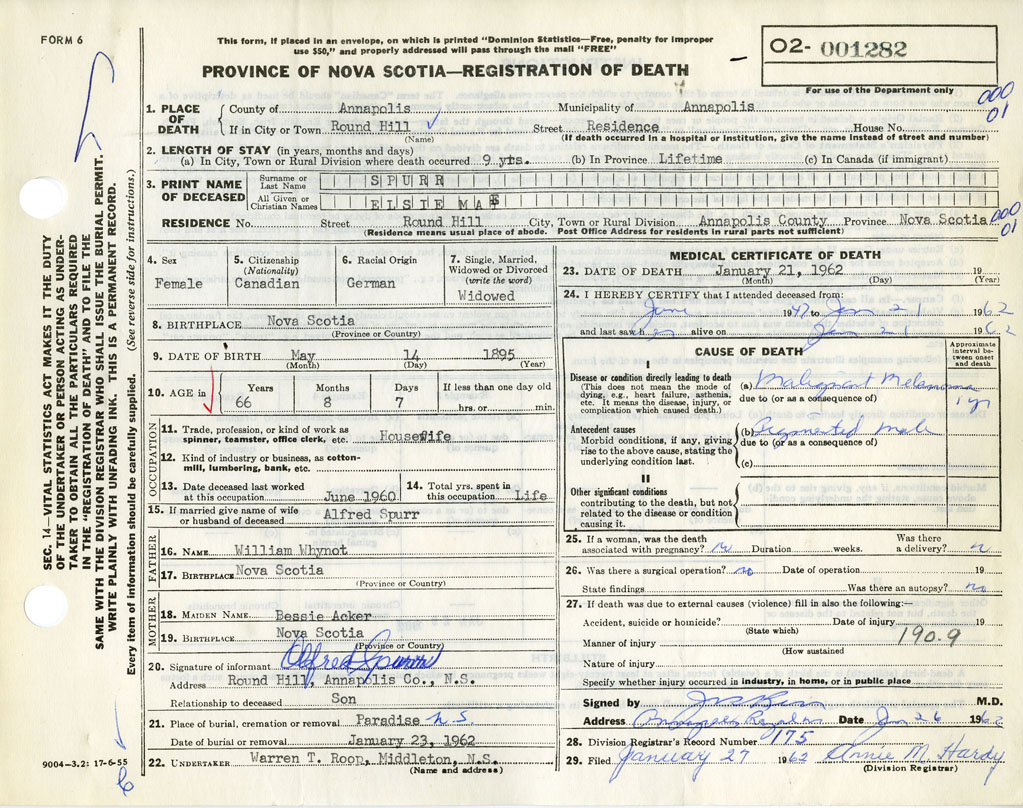 FORM 6
This form, if placed in an envelope, on which is printed "Dominion Statistics—Free, penalty for improper
use $50," and properly addressed will pass through the mail "FREE"
PROVINCE OF NOVA SCOTIA—REGISTRATION OF DEATH
02- 001282
For use of the Department only
000
01
SEC. 14—VITAL STATISTICS ACT MAKES IT THE DUTY
OF THE UNDERTAKER OR PERSON ACTING AS UNDER-
TAKER TO OBTAIN ALL THE PARTICULARS REQUIRED
IN THE "REGISTRATION OF DEATH" AND TO FILE THE
SAME WITH THE DIVISION REGISTRAR WHO SHALL ISSUE THE BURIAL PERMIT.
WRITE PLAINLY WITH UNFADING INK. THIS IS A PERMANENT RECORD.
Every item of information should be carefully supplied. (See reverse side for instructions.)
1. PLACE OF DEATH
County of Annapolis Municipality of Annapolis
If in City or Town Round Hill Street Residence House No.
(Name) (If death occurred in a hospital or institution, give the name instead of street and number)
2. LENGTH OF STAY (in years, months and days)
(a) In City, Town or Rural Division where death occurred 9 yrs. (b) In Province Lifetime (c) In Canada (if immigrant)
3. PRINT NAME OF DECEASED
Surname or Last Name SPURR
All Given or Christian Names ELSIE MAE
RESIDENCE No. Street Round Hill City, Town or Rural Division Annapolis County Province Nova Scotia 000
01
(Residence means usual place of abode. Post Office Address for residents in rural parts not sufficient)
4. Sex
Female
5. Citizenship
(Nationality)
Canadian
6. Racial Origin
German
7. Single, Married,
Widowed or Divorced
(write the word)
Widowed
8. BIRTHPLACE Nova Scotia
(Province or Country)
9. DATE OF BIRTH May 14 1895
(Month) (Day) (Year)
10. AGE in Years Months Days If less than one day old
66 8 7 hrs. or min.
OCCUPATION
11. Trade, profession, or kind of work as
spinner, teamster, office clerk, etc. Housewife
12. Kind of industry or business, as cotton-
mill, lumbering, bank, etc.
13. Date deceased last worked
at this occupation June 1960
14. Total yrs. spent in
this occupation Life
15. If married give name of wife
or husband of deceased Alfred Spurr
FATHER
16. NAME William Whynot
17. BIRTHPLACE Nova Scotia
(Province or Country)
MOTHER
18. MAIDEN NAME Bessie Acker
19. BIRTHPLACE Nova Scotia
(Province or Country)
20. Signature of informant Alfred Spurr
Address Round Hill, Annapolis Co., N.S.
Relationship to deceased Son
21. Place of burial, cremation or removal Paradise N.S
Date of burial or removal January 23, 1962
22. UNDERTAKER Warren T. Roop, Middleton, N.S.
(Name and address)
9004-3.2: 17-6-55
MEDICAL CERTIFICATE OF DEATH
23. DATE OF DEATH January 21, 1962 19
(Month) (Day) (Year)
24. I HEREBY CERTIFY that I attended deceased from:
June 1947 to Jan 21 1962
and last saw her alive on Jan 21 1962
CAUSE OF DEATH
Approximate
interval be-
tween onset
and death
I
Disease or condition directly leading to death
(This does not mean the mode of
dying, e.g., heart failure, asthenia,
etc. It means the disease, injury, or
complication which caused death.)
(a) Malignant Melanoma 1 yr
due to (or as a consequence of)
Antecedent causes
Morbid conditions, if any, giving
rise to the above cause, stating the
underlying condition last.
(b) Pigmented Mole
due to (or as a consequence of)
(c)
II
Other significant conditions
contributing to the death, but not
related to the disease or condition
causing it.
25. If a woman, was the death
associated with pregnancy? no Duration weeks. Was there
a delivery? n
26. Was there a surgical operation? no Date of operation 19
State findings Was there an autopsy? no
27. If death was due to external causes (violence) fill in also the following:—
Accident, suicide or homicide? Date of injury 19
(State which)
Manner of injury 190.9
(How sustained)
Nature of injury
Specify whether injury occurred in industry, in home, or in public place
Signed by M.D.
Address Date Jan 26 1962
28. Division Registrar's Record Number 175
29. Filed January 27 1962 Annie M. Hardy
(Division Registrar)